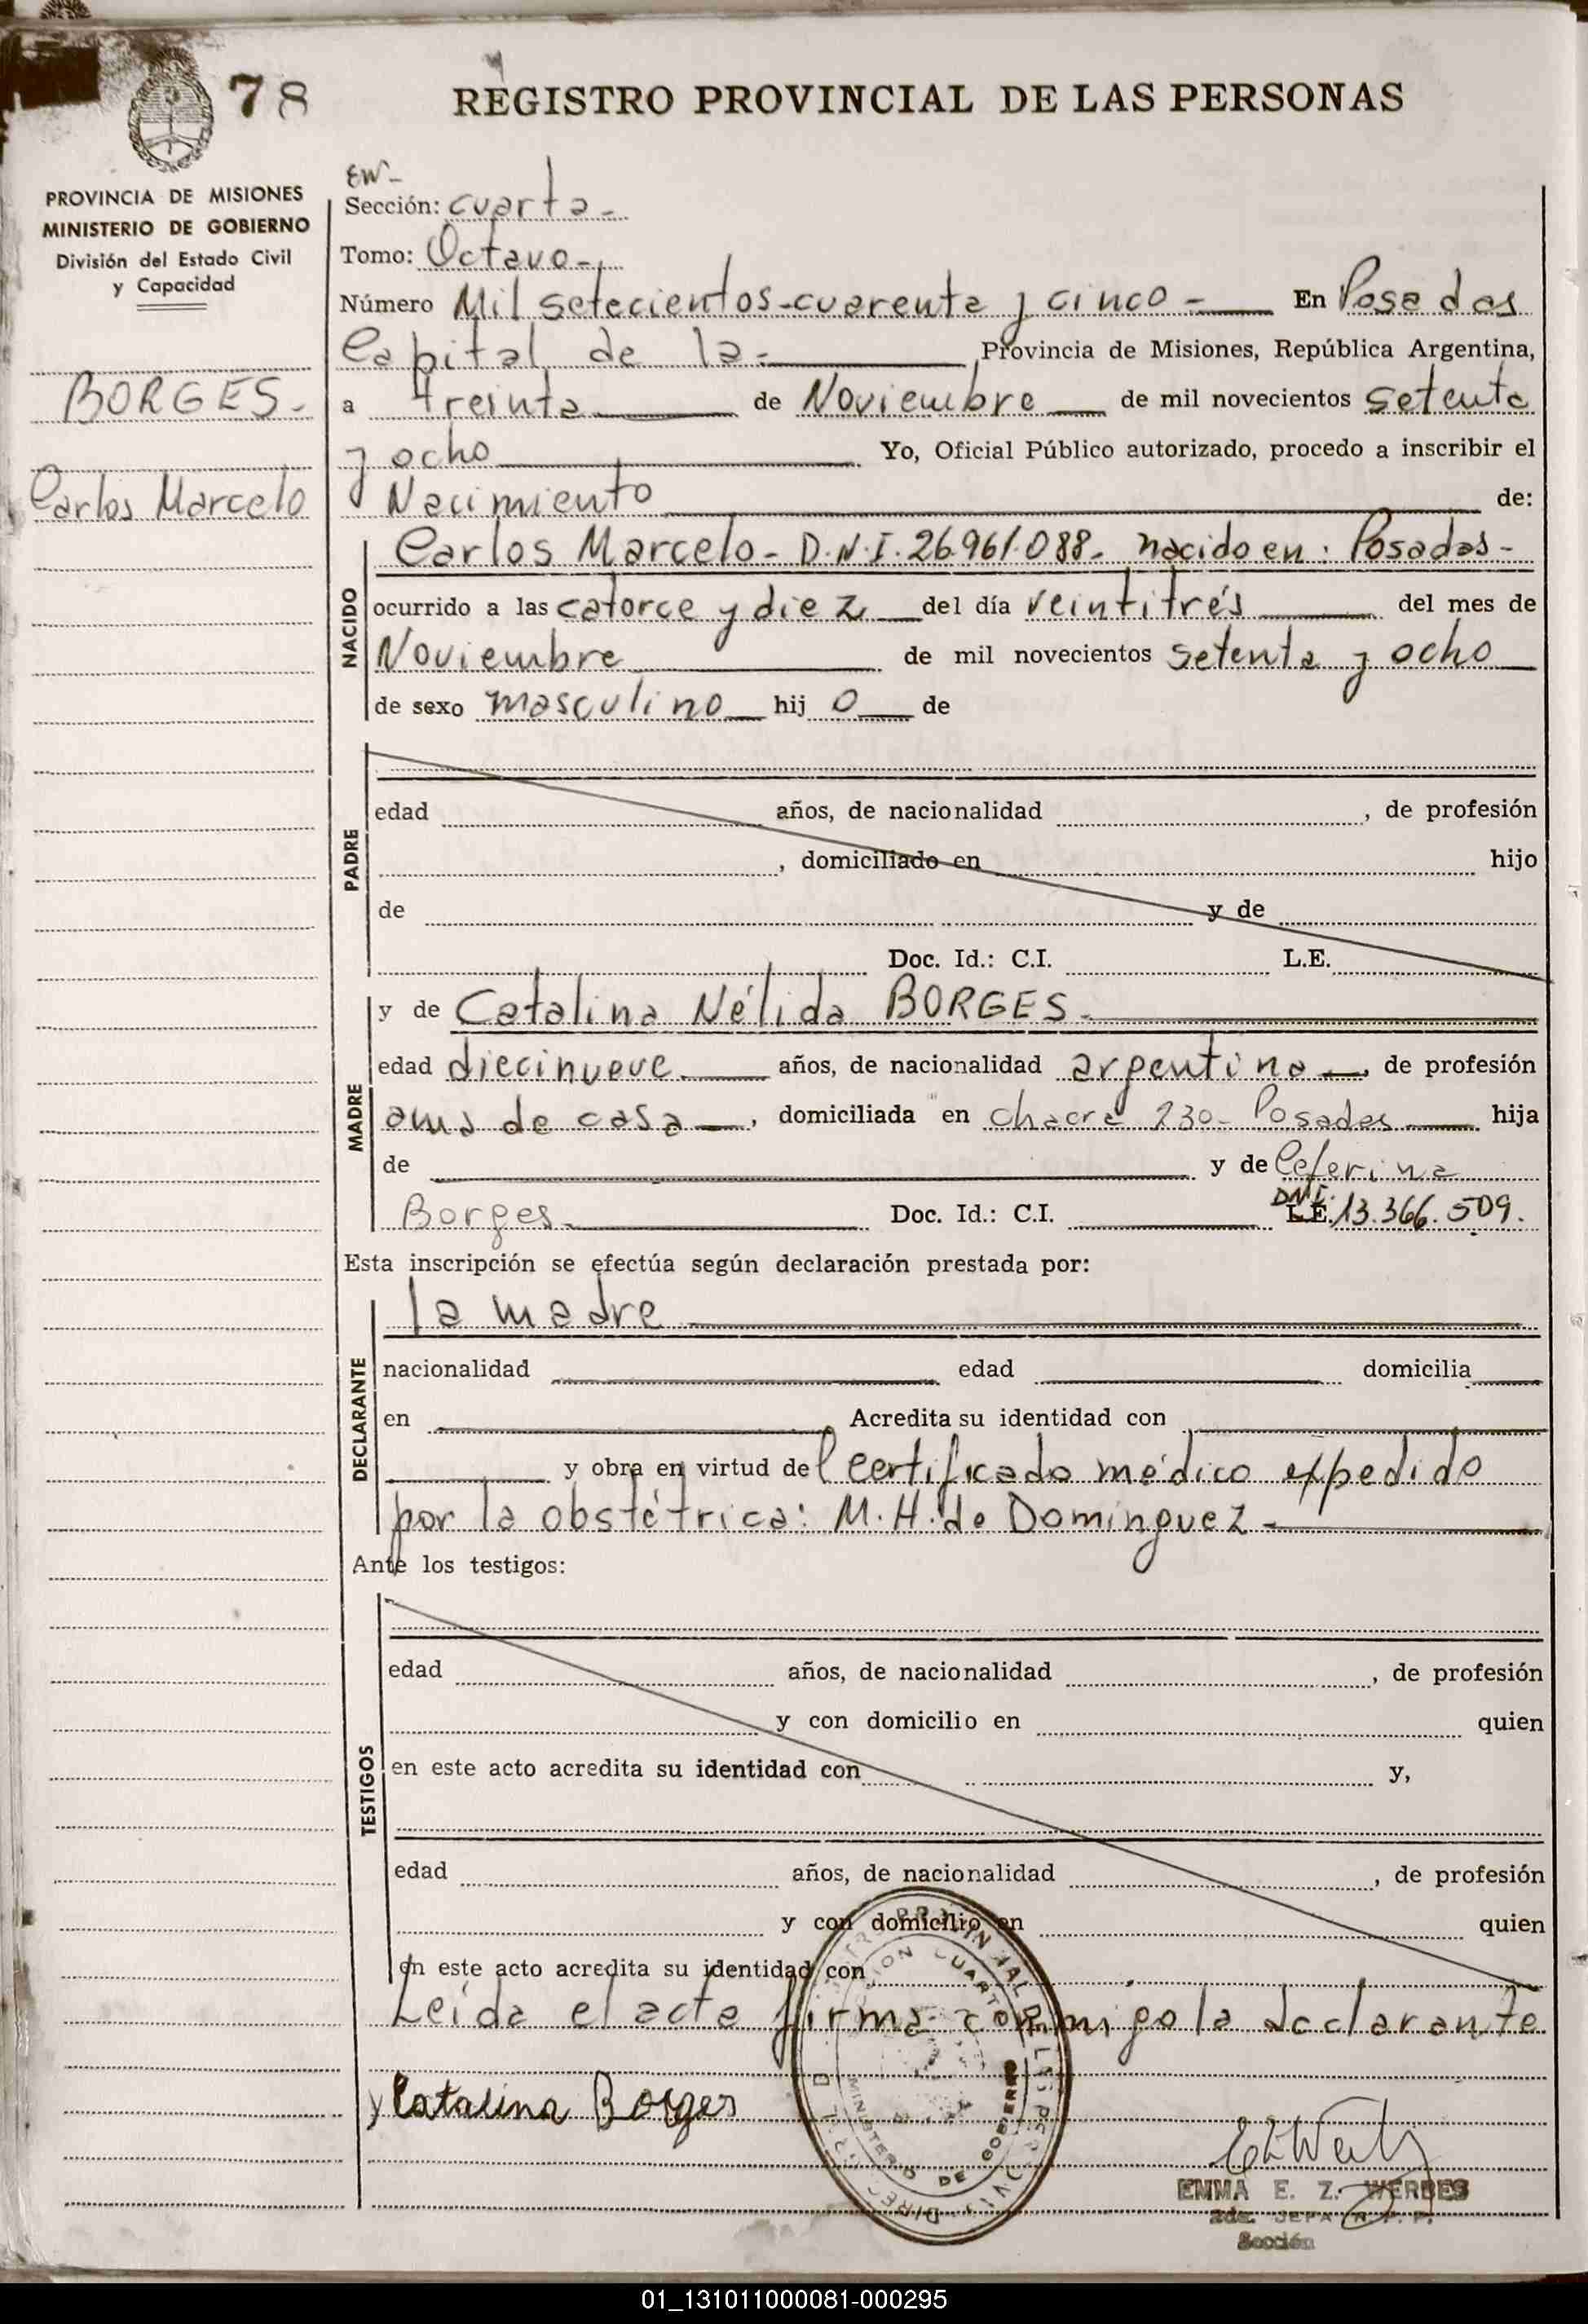 78
REGISTRO PROVINCIAL DE LAS PERSONAS
PROVINCIA DE MISIONES
MINISTERIO DE GOBIERNO
División del Estado Civil
y Capacidad
BORGES.-
Carlos Marcelo
EW-
Sección: cuarta.-
Tomo: Octavo.-
Número Mil setecientos-cuarenta y cinco.- En Posadas
Capital de la.- Provincia de Misiones, República Argentina,
a treinta de Noviembre de mil novecientos setenta
y ocho Yo, Oficial Público autorizado, procedo a inscribir el
Nacimiento de:
NACIDO
Carlos Marcelo.- D.N.I. 26.961.088.- nacido en: Posadas.-
ocurrido a las catorce y diez del día veintitrés del mes de
Noviembre de mil novecientos setenta y ocho
de sexo masculino hij o de
PADRE
edad años, de nacionalidad , de profesión
, domiciliado en hijo
de y de
Doc. Id.: C.I. L.E.
MADRE
y de Catalina Nélida BORGES.-
edad diecinueve años, de nacionalidad argentina, de profesión
ama de casa, domiciliada en chacra 230- Posadas hija
de y de Ceferina
Borges.- Doc. Id.: C.I. L.E. DNI. 13.366.509.
Esta inscripción se efectúa según declaración prestada por:
DECLARANTE
la madre
nacionalidad edad domicilia
en Acredita su identidad con
y obra en virtud del certificado médico expedido
por la obstétrica: M.H. de Domínguez.-
Ante los testigos:
TESTIGOS
edad años, de nacionalidad , de profesión
y con domicilio en quien
en este acto acredita su identidad con y,
edad años, de nacionalidad , de profesión
y con domicilio en quien
en este acto acredita su identidad con
Leída el acta firma conmigo la declarante
Catalina Borges
SECCION CUARTA
MINISTERIO DE GOBIERNO
EMMA E. Z. WERBES
2da. JEFA R. P. P.
Sección
01_131011000081-000295